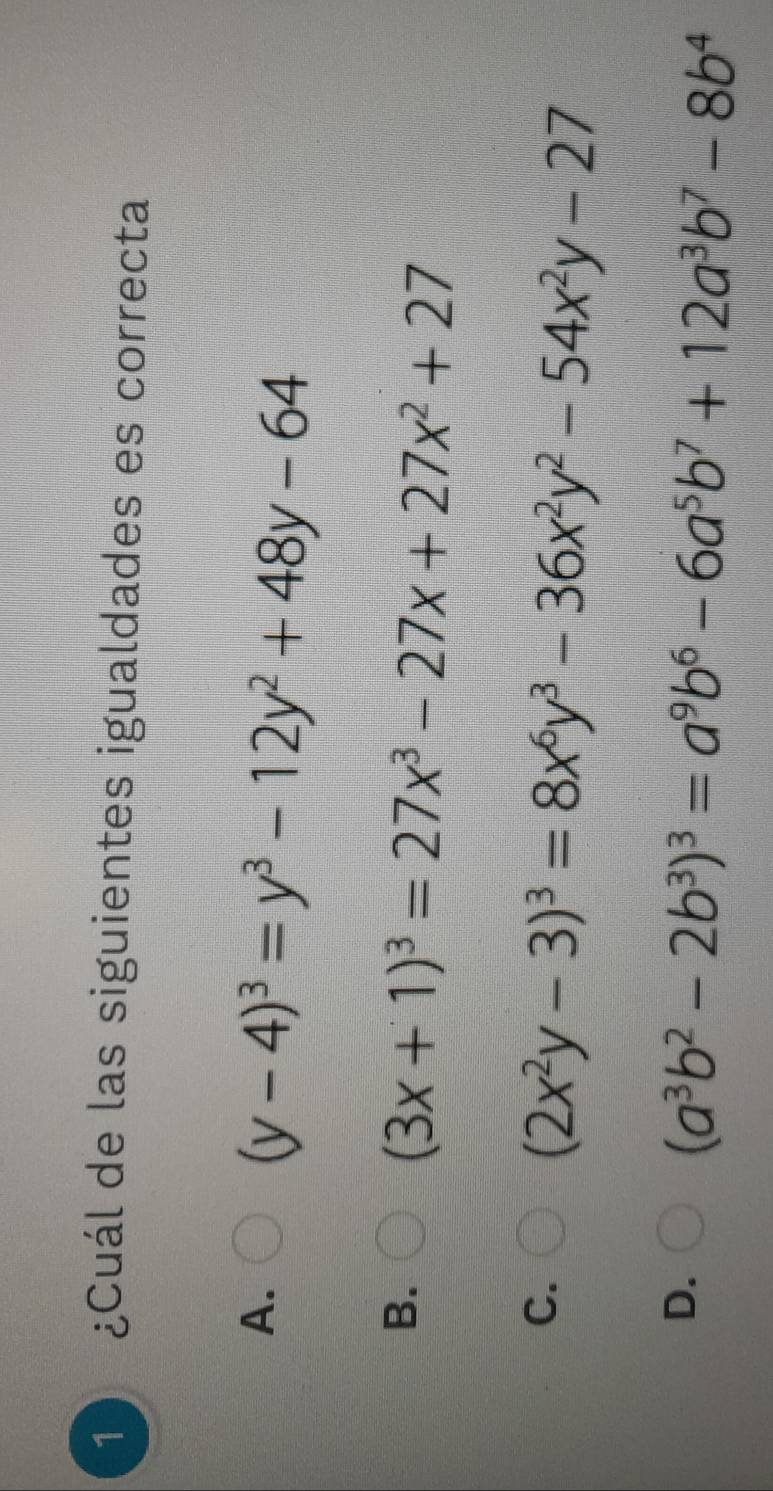 1 ¿Cuál de las siguientes igualdades es correcta
A. (y − 4)³ = y³ − 12y² + 48y − 64
B. (3x + 1)³ = 27x³ − 27x + 27x² + 27
C. (2x²y − 3)³ = 8x⁶y³ − 36x²y² − 54x²y − 27
D. (a³b² − 2b³)³ = a⁹b⁶ − 6a⁵b⁷ + 12a³b⁷ − 8b⁴